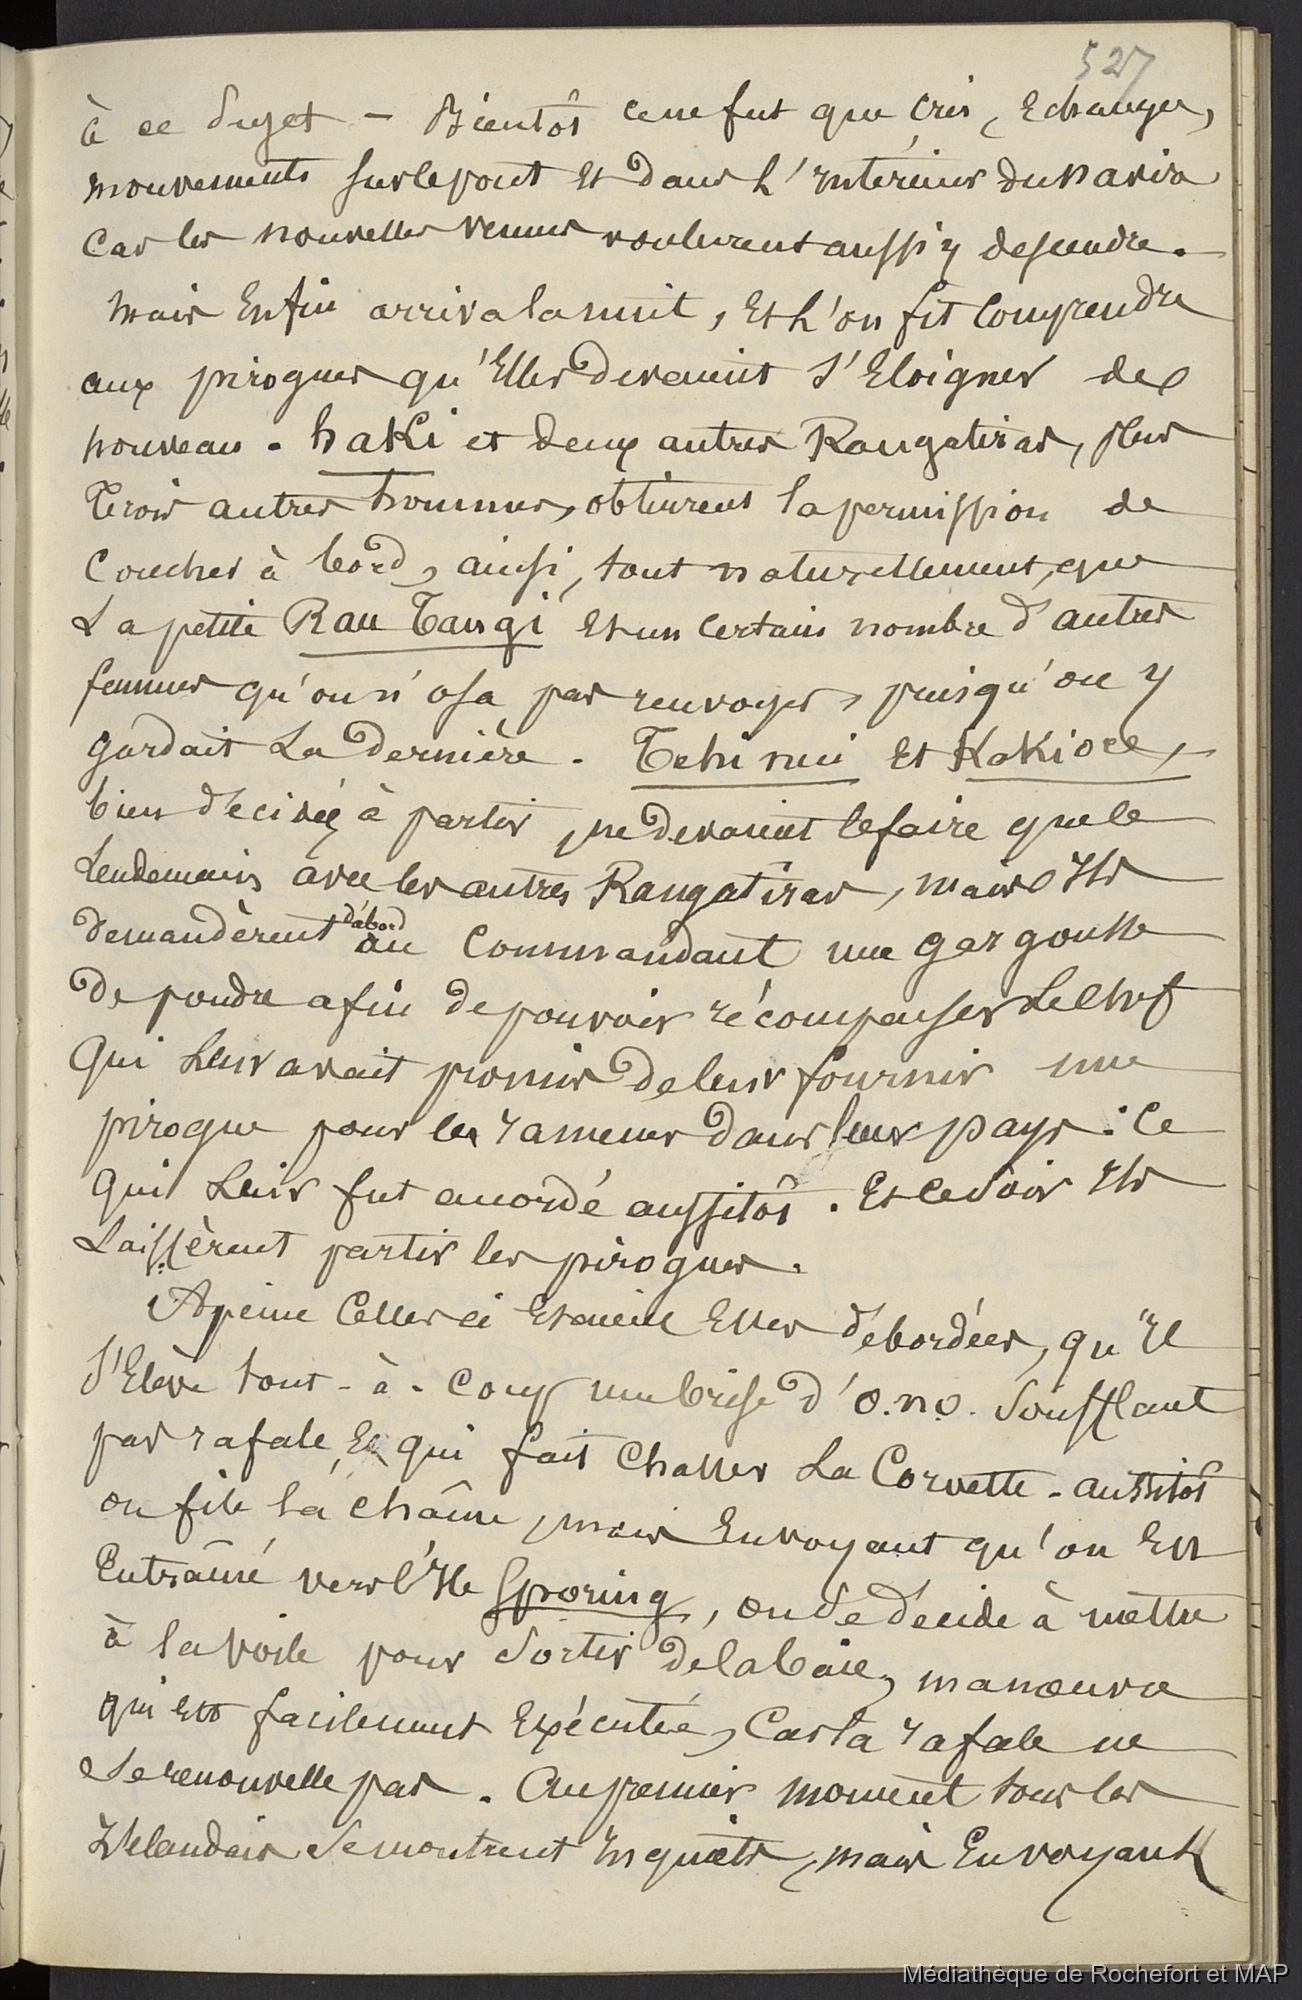 527
à ce sujet – Bientôt ce ne fut que cris, Echanges,
mouvements sur le pont Et dans L'intérieur du navire
Car les nouvelles venues voulurent aussi y descendre.
Mais Enfin arriva la nuit, Et L'on fit Comprendre
aux pirogues qu'Elles devaient S'Eloigner de
nouveau. haki et deux autres Rangatiras, plus
Trois autres hommes, obtinrent la permission de
Coucher à bord, ainsi, tout naturellement, que
La petite Rau Tangi Et un certain nombre d'autres
femmes qu'on n'osa pas renvoyer, puisqu'on y
gardait La dernière. Tehi nui Et Kokiore,
bien décidés à partir, ne devaient le faire que le
Lendemain avec les autres Rangatiras, mais Ils
demandèrent d'abord au Commandant une gargousse
De poudre afin de pouvoir récompenser Le Chef
Qui Leur avait promis de leur fournir une
pirogue pour les ramener dans leur pays : Ce
Qui Leur fut accordé aussitôt. Et ce soir Ils
Laissèrent partir les pirogues.
A peine Celles ci Etaient Elles débordées, qu'Il
S'Elève tout-à-coup une brise d'O.N.O. Soufflant
par rafale, Et qui fait Chasser La Corvette. Aussitôt
on file la chaîne, mais En voyant qu'on Est
Entraîné vers l'Ile Sporing, on Se décide à mettre
à la voile pour Sortir de la baie, manœuvre
qui Est facilement Exécutée, Car la rafale ne
Se renouvelle pas. Au premier moment tous les
Zélandais Se montrent Inquiets, mais En voyant
Médiathèque de Rochefort et MAP